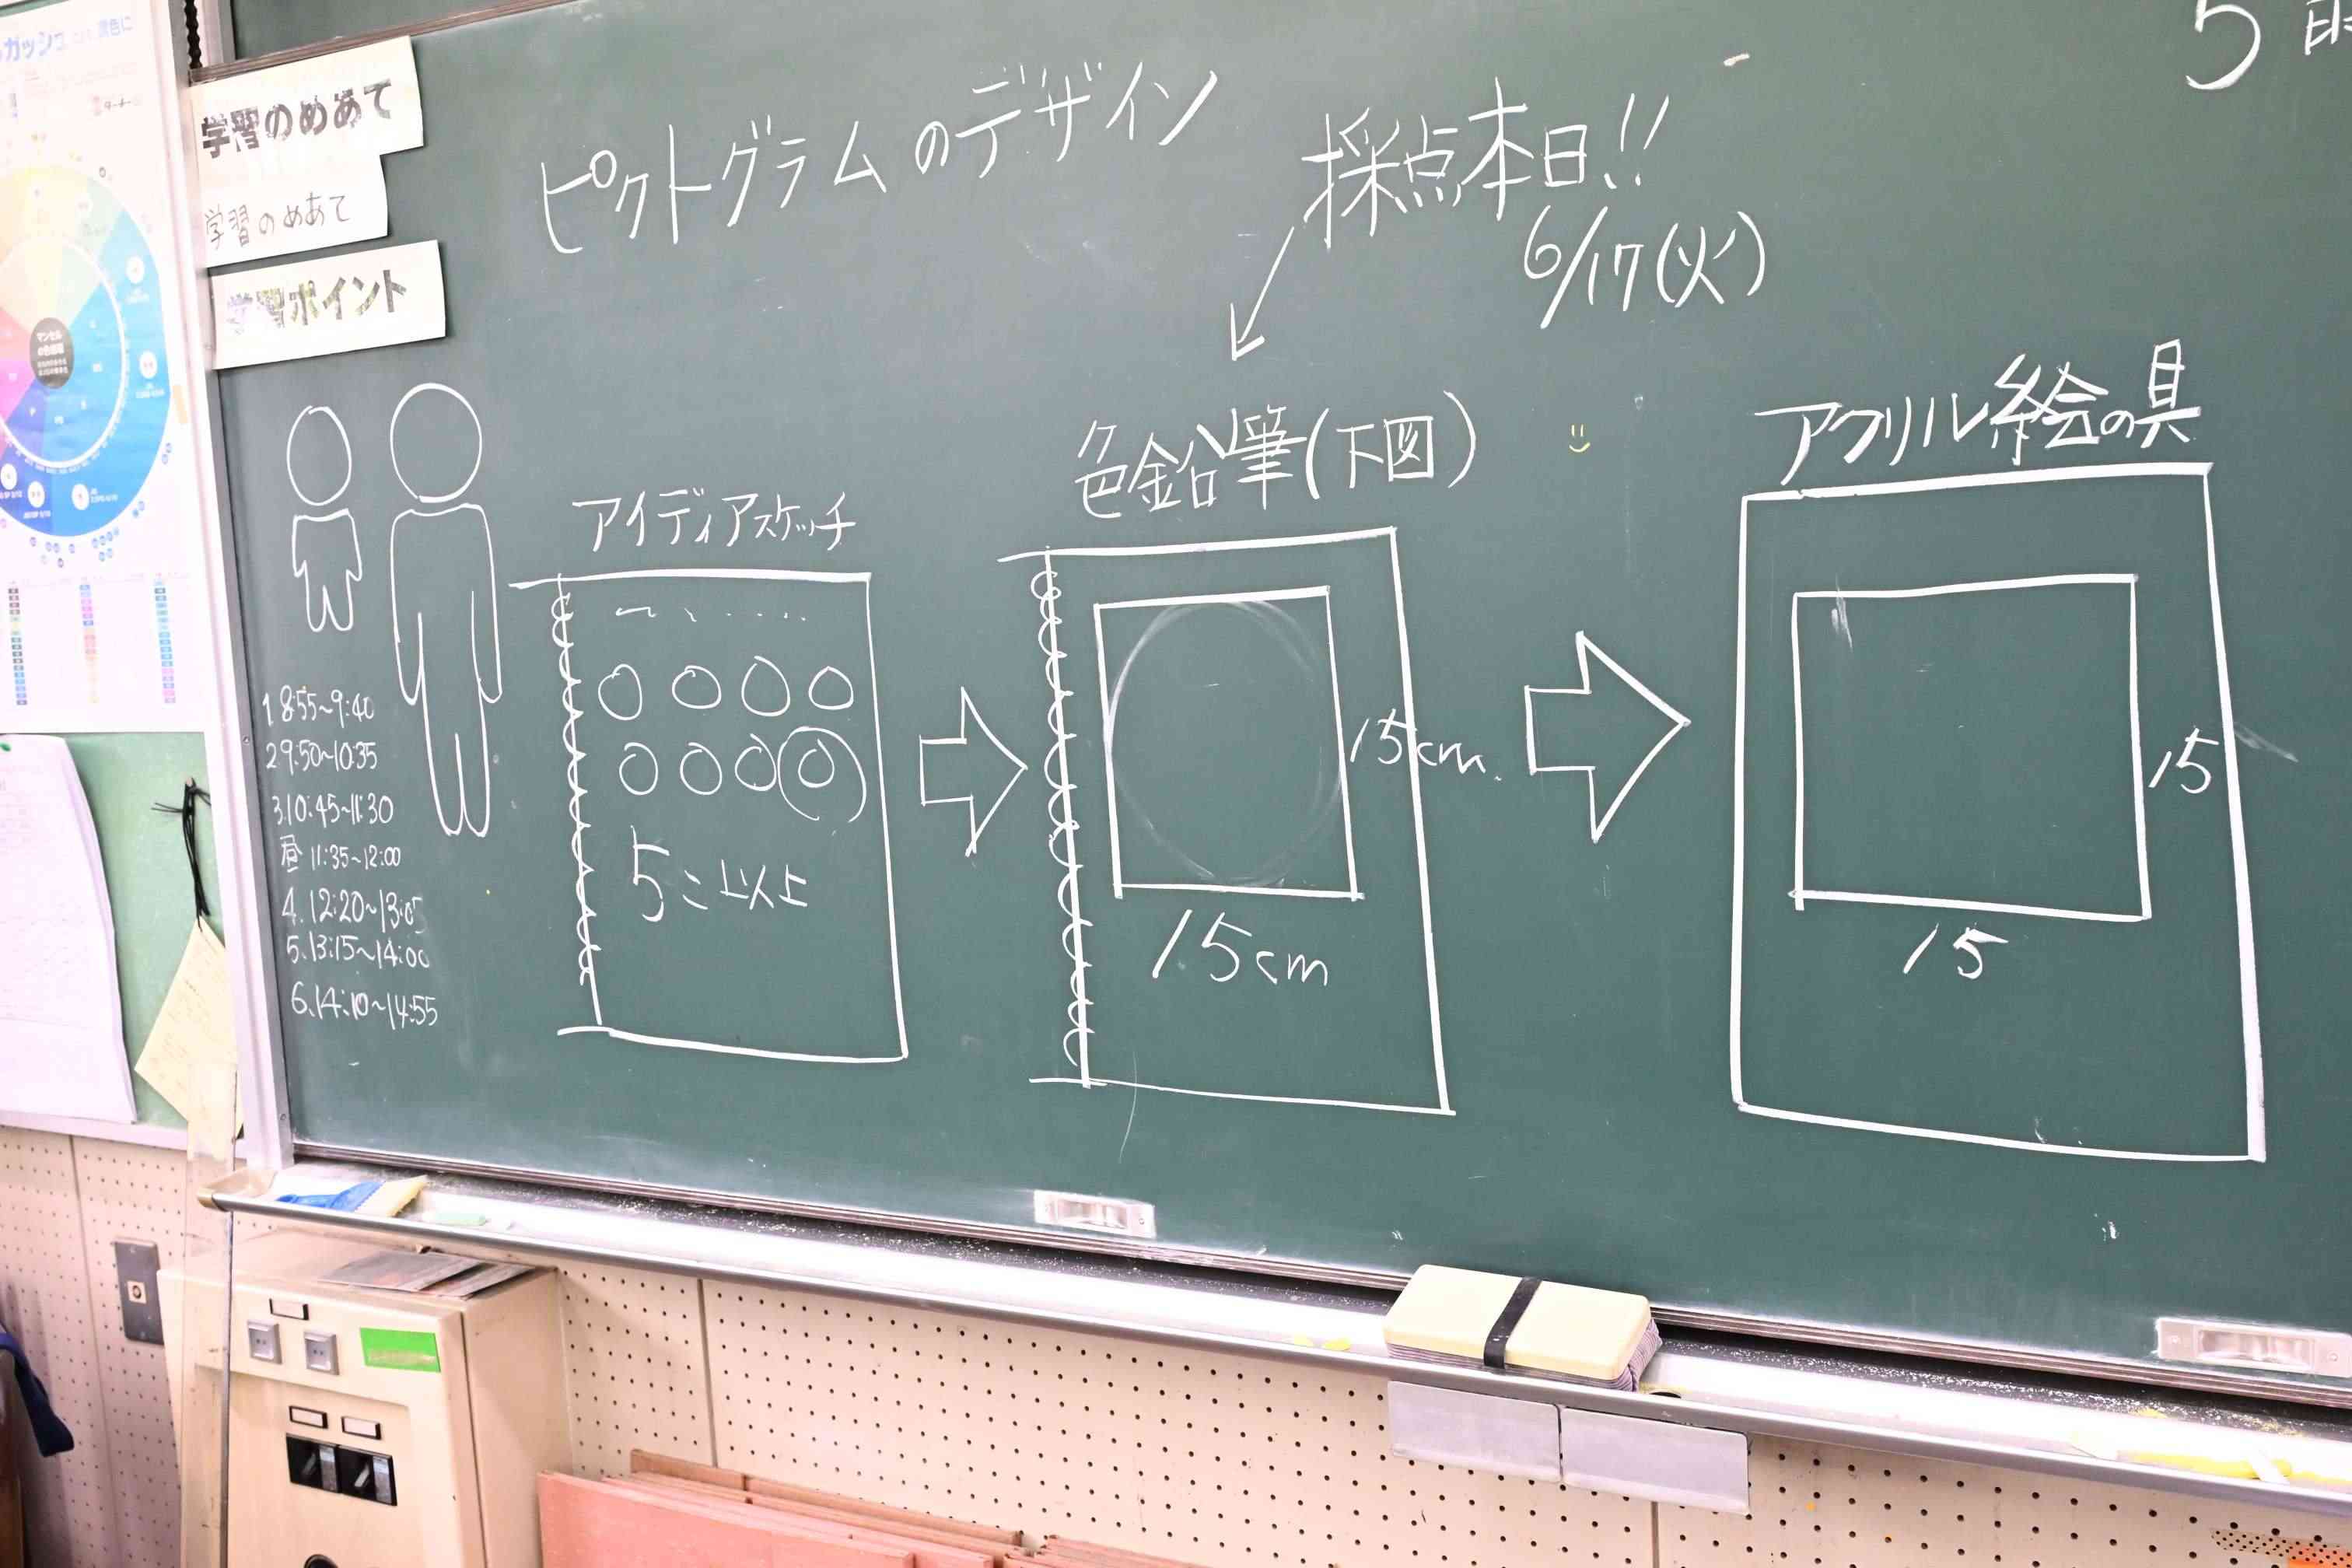 学習のめあて
学習のめあて
学習ポイント
ピクトグラムのデザイン
採点本日!!
6/17(火)
5時
アイディアスケッチ
5こ以上
色鉛筆(下図)
15cm
15cm
アクリル絵の具
15
15
1.8:55~9:40
2.9:50~10:35
3.10:45~11:30
昼 11:35~12:00
4.12:20~13:05
5.13:15~14:00
6.14:10~14:55
マンセル